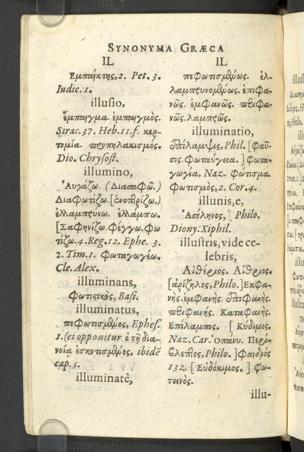 SYNONYMA GRÆCA
IL
Ἐμπαίκτης, 2. Pet. 3.
Iudic. 1.
illusio,
ἔμπαιγμα. ἐμπαιγμὸς.
Sirac. 37. Heb. 11. f. κερ-
τομία. προπηλακισμὸς.
Dio. Chrysost.
illumino,
Αὐγάζω. (Διασαφῶ.)
Διαφωτίζω. [ἐνοπτρίζω.)
ἐλλαμπρύνω. ἐλλάμπω.
[Σαφηνίζω. Φέγγω. φω
τίζω. 4. Reg. 12. Ephe. 3.
2. Tim. 1. Φωταγωγέω.
Cle. Alex.
illuminans,
Φωτιστικὸς, Basi.
illuminatus,
πεφωτισμένος, Ephes.
1. (ei opponitur ὁ τῇ δια-
νοίᾳ ἐσκοτισμένος, ibidē
cap. 5.
illuminatè,
IL
πεφωτισμένως. ἐλ-
λαμπρυνομένως. ἐπιφα-
νῶς. ἐμφανῶς. περιφα-
νῶς. λαμπρῶς.
illuminatio,
ἐπίλαμψις, Phil. [φαῦ-
σις. φωταύγεια.] φωτα-
γωγία, Naz. φώτισμα.
φωτισμὸς, 2. Cor. 4.
illunis, e,
Ἀσέληνος, Philo.
Diony. Xiphil.
illustris, vide ce-
lebris,
Αἰθέριος.
[ἀρίζηλος, Philo.] Ἐκφα-
νὴς. ἐμφανὴς. ἐπιφανὴς.
περιφανὴς. Καταφανὴς.
Ἐπίλαμπρος. [Κύδιμος,
Naz. Car. Ὁ πάνυ. Περί-
βλεπτος, Philo.] Φαιδρὸς
132. [Εὐδόκιμος.] φω-
τεινὸς.
illu-